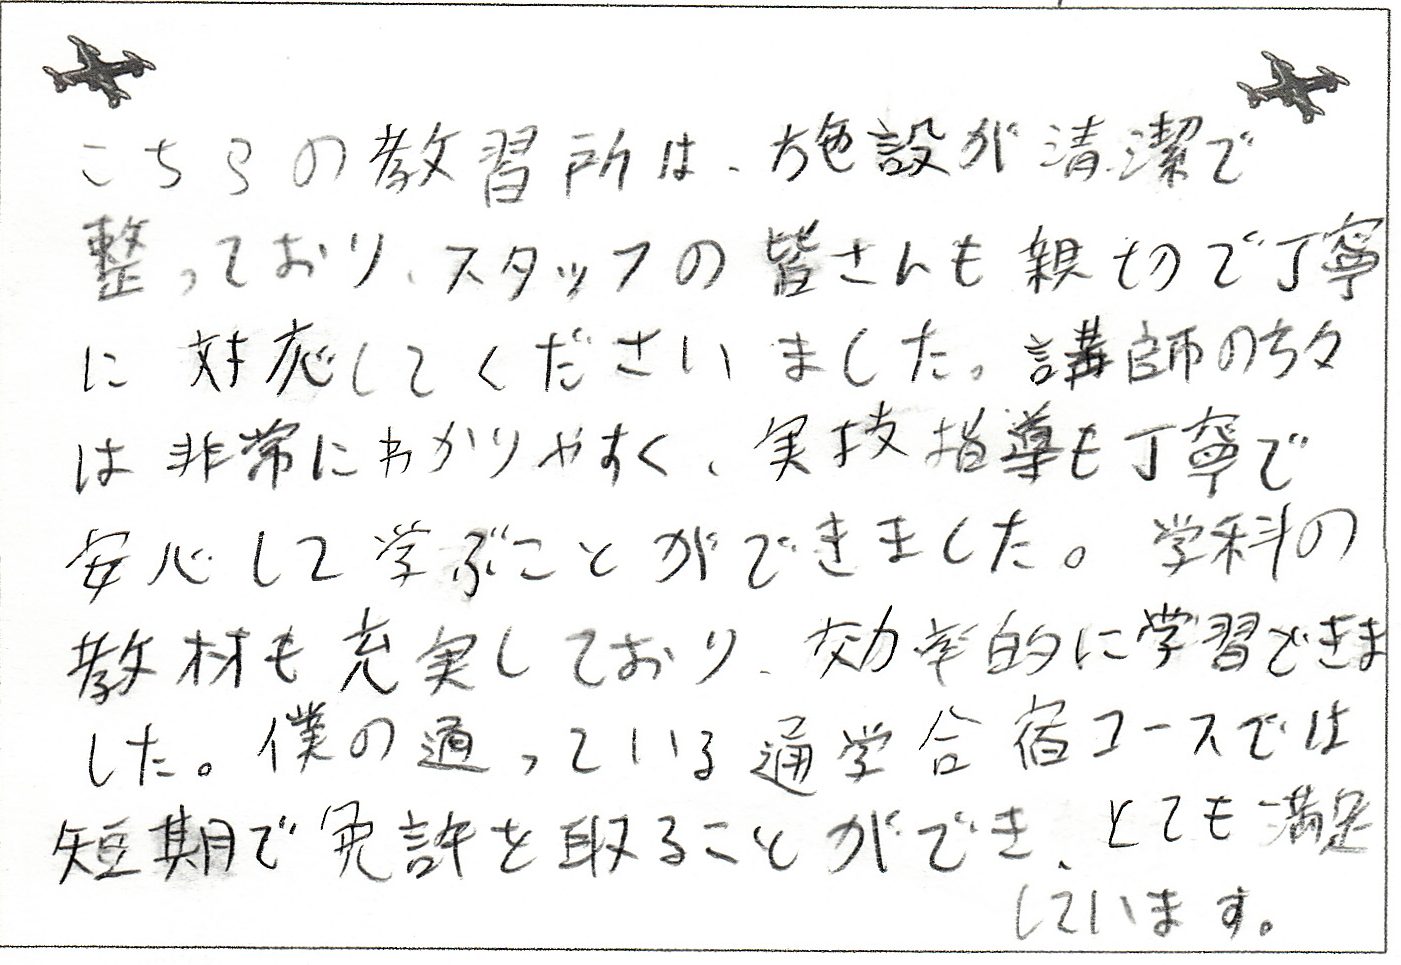 こちらの教習所は、施設が清潔で
整っており、スタッフの皆さんも親切で丁寧
に対応してくださいました。講師の方々
は非常にわかりやすく、実技指導も丁寧で
安心して学ぶことができました。学科の
教材も充実しており、効率的に学習できま
した。僕の通っている通学合宿コースでは
短期で免許を取ることができ、とても満足
しています。